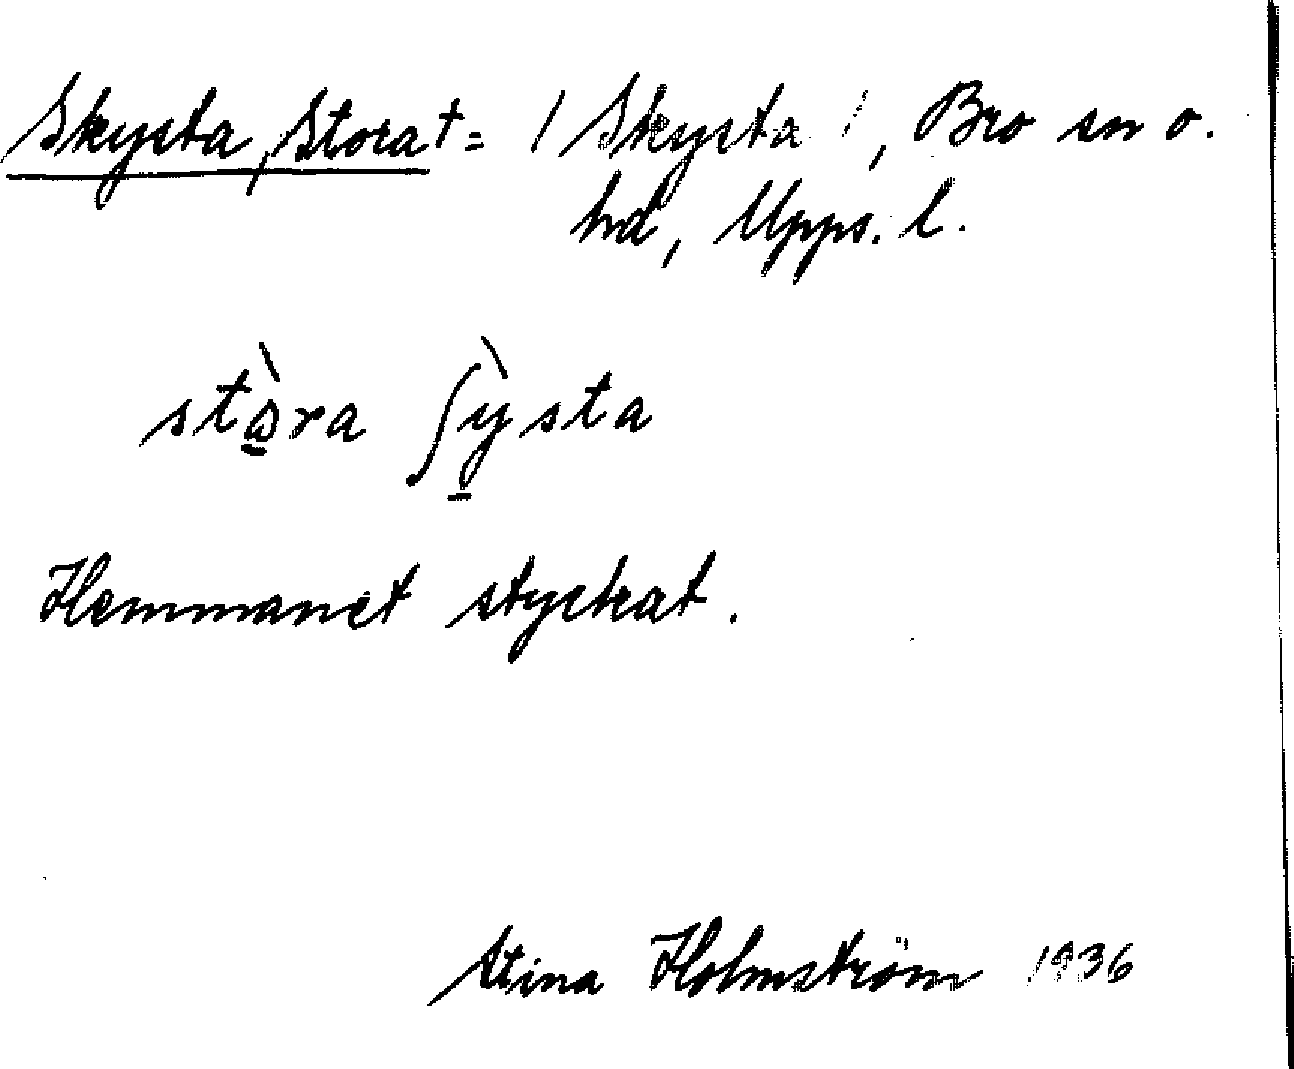 Skysta, Stora † = / Skysta /, Bro sn o.
hd, Upps. l.
stɑ̱̀ra ʃỳ̱sta
Hemmanet styckat.
Stina Holmström 1936